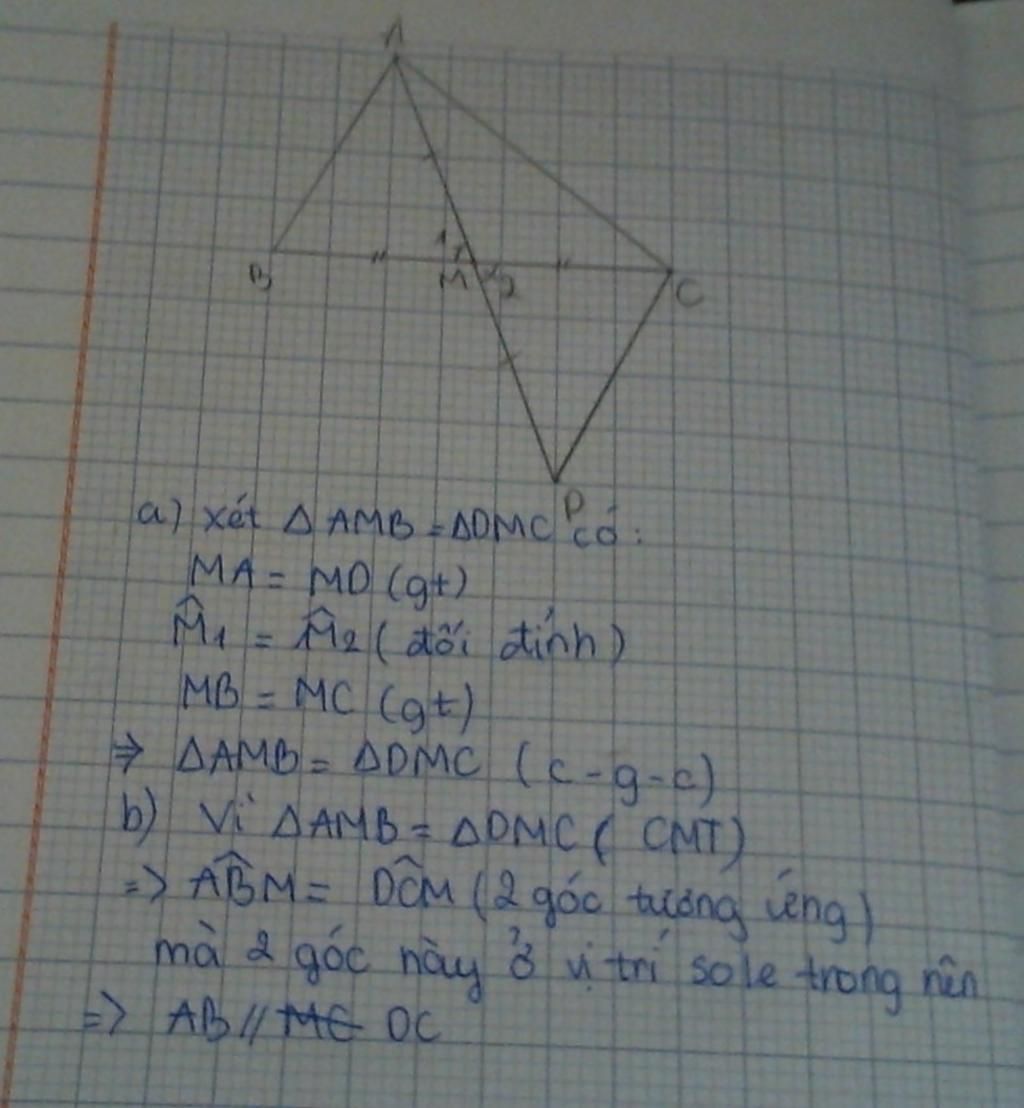 A
B
1
M
2
C
D
a) xét ΔAMB = ΔDMC có:
MA = MD (gt)
M̂1 = M̂2 (đối đỉnh)
MB = MC (gt)
⇒ ΔAMB = ΔDMC (c-g-c)
b) Vì ΔAMB = ΔDMC (CMT)
=> AB̂M = DĈM (2 góc tương ứng)
mà 2 góc này ở vị trí sole trong nên
=> AB // ~~MC~~ DC